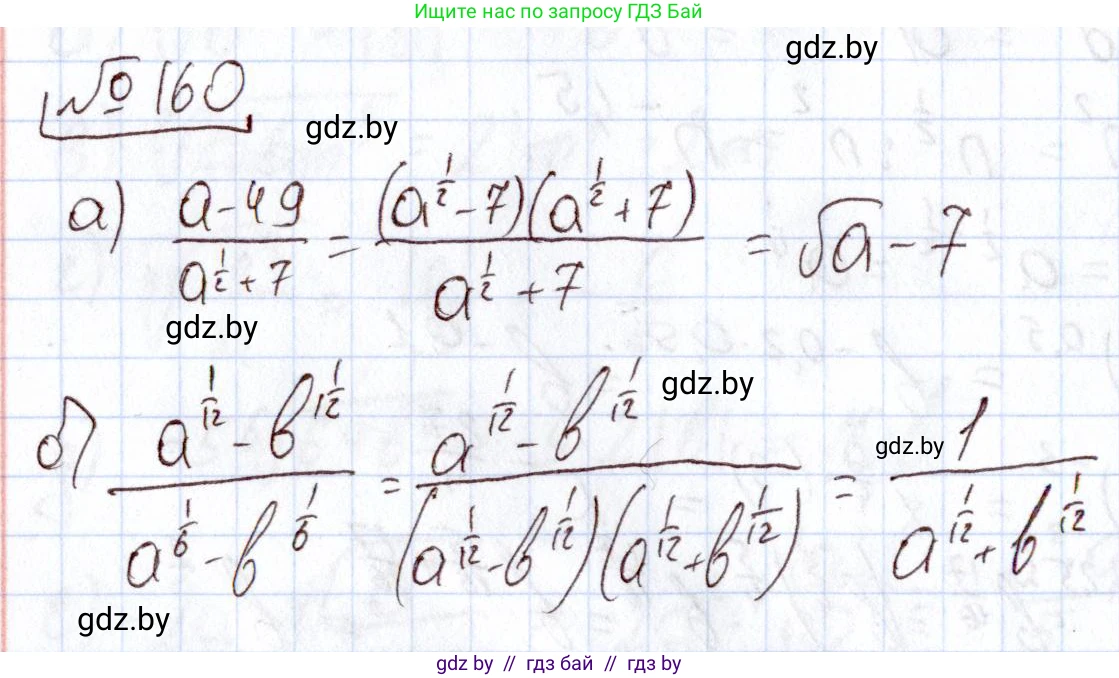 Ищите нас по запросу ГДЗ Бай
gdz.by
№ 160
gdz.by
а) (a - 49)/(a^(1/2) + 7) = ((a^(1/2) - 7)(a^(1/2) + 7))/(a^(1/2) + 7) = √a - 7
gdz.by
gdz.by
gdz.by
б) (a^(1/12) - b^(1/12))/(a^(1/6) - b^(1/6)) = (a^(1/12) - b^(1/12))/((a^(1/12) - b^(1/12))(a^(1/12) + b^(1/12))) = 1/(a^(1/12) + b^(1/12))
gdz.by
gdz.by // гдз бай // гдз by